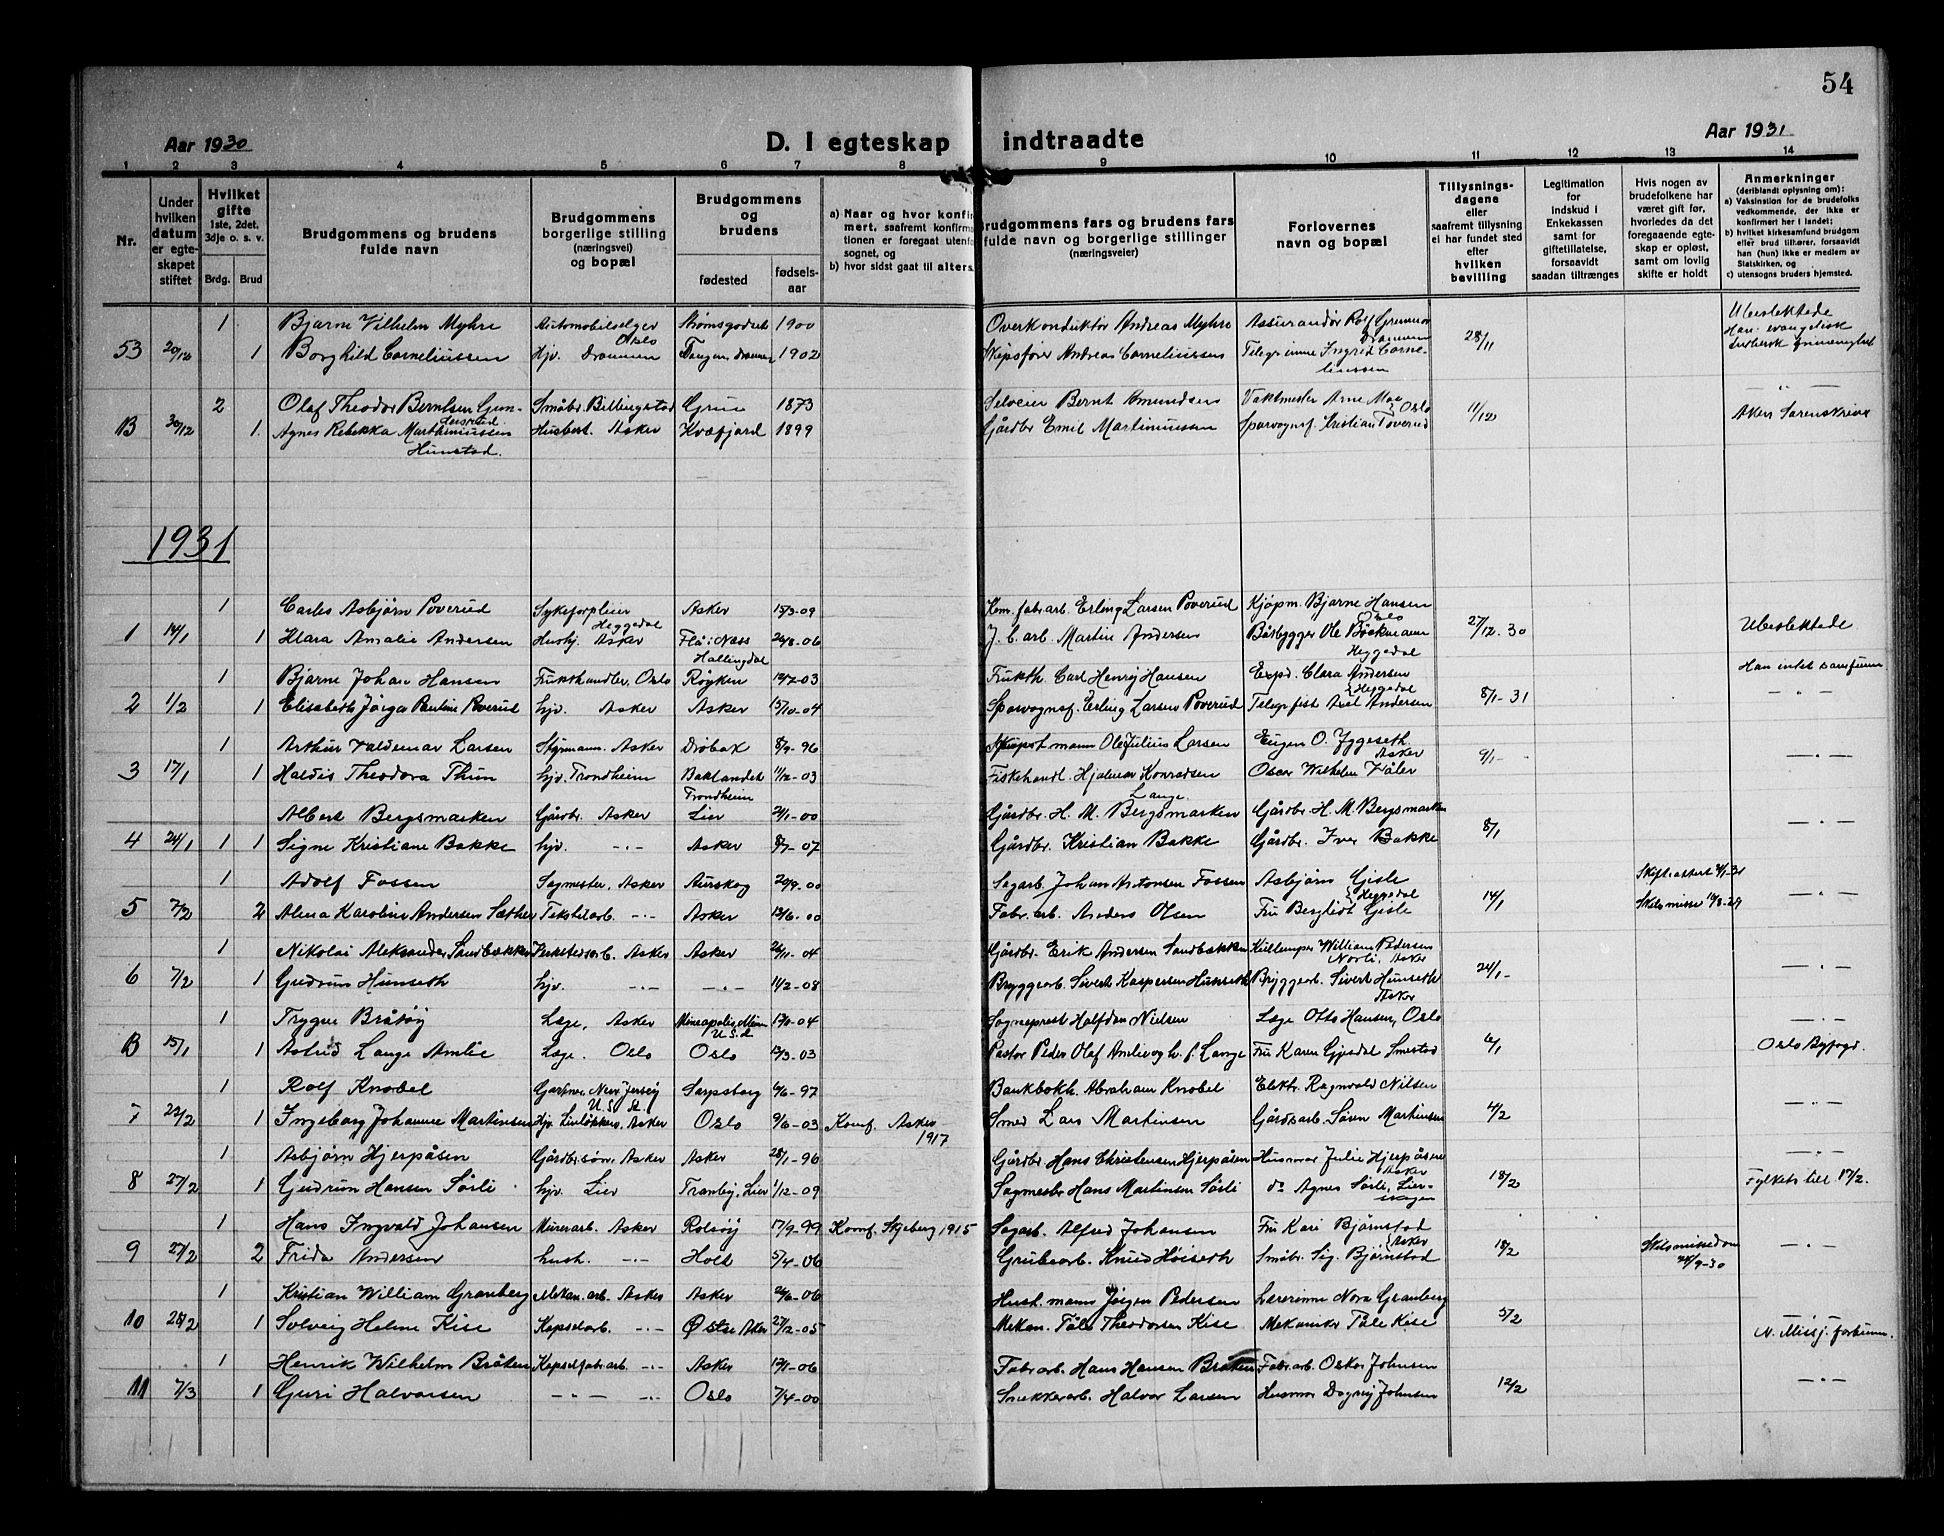 54
Aar 1930 D. I egteskap indtraadte Aar 1931
1 2 3 4 5 6 7 8 9 10 11 12 13 14
Nr.
Under hvilken datum er egteskapet stiftet
Hvilket gifte 1ste, 2det. 3dje o. s. v.
Brdg. Brud
Brudgommens og brudens fulde navn
Brudgommens borgerlige stilling (næringsvei) og bopæl
Brudgommens og brudens
fødested fødsels-aar
a) Naar og hvor konfir
mert, saafremt konfirma
tionen er foregaat utenfo
sognet, og
b) hvor sidst gaat til alters.
Brudgommens fars og brudens fars
fulde navn og borgerlige stillinger
(næringsveier)
Forlovernes
navn og bopæl
Tillysnings-
dagene
eller
saafremt tillysning
ei har fundet sted
efter
hvilken
bevilling
Legitimation
for
indskud i
Enkekassen
samt for
giftetillatelse,
forsaavidt
saadan tiltrænges
Hvis nogen av
brudefolkene har
været gift før,
hvorledes da det
foregaaende egte-
skap er opløst,
samt om lovlig
skifte er holdt
Anmerkninger
(deriblandt oplysning om):
a) Vaksination for de brudefolks
vedkommende, der ikke er
konfirmert her i landet;
b) hvilket kirkesamfund brudgom
eller brud tilhører, forsaavidt
han (hun) ikke er medlem av
Statskirken, og
c) utensogns bruders hjemsted.
1 Bjarne Vilhelm Myhre Automobilselger Oslo Strømsgodset 1900 Overkonduktør Andreas Myhre Assurandør Rolf Drammen Ubeslektede
53 20/12 1 Borghild Corneliussen Hjv. Drammen Tangen, Drammen 1902 Skipsfører Andreas Corneliussen Ingrid Corneliussen 28/11 Han evangelisk luthersk
2 Olaf Theodor Berntsen Småbr. Billingstad Grue 1873 Selveier Bernt Amundsen Vaktmester Arne Moe Oslo — „ —
B 30/12 1 Agnes Rebekka Marthinussen Hunstad Husbest. Asker Kvæfjord 1899 Gårdbr. Emil Martinussen Sporvognsf. Kristian Toverud 11/12 Aker Sorenskriver
1931
1 Carles Asbjørn Poverud Sykepleier Heggedal Asker 15/3-09 Kem. fabr. arb. Erling Larsen Poverud Kjøpm. Bjarne Hansen Oslo
1 14/1 1 Klara Amalie Andersen Hushj. Asker Flå i Ness Hallingdal 24/8-06 J. b. arb. Martin Andersen Båtbygger Ole Bøckmann Heggedal 27/12.30 Ubeslektede
1 Bjarne Johan Hansen Frukthandler, Oslo Røyken 12/2-03 Frukth. Carl Henry Hansen Expd. Clara Andersen Heggedal Han intet samfunn
2 1/2 1 Elisabeth Jørga Pauline Poverud hjv. Asker Asker 15/10-04 Sporvognsf. Erling Larsen Poverud Telegrafist Axel Andersen 8/1-31 — „ —
1 Arthur Valdemar Larsen Styrmann. Asker Drøbak 8/9-96 Ole Julius Larsen Eugen O. Yggeseth. Asker
3 17/1 1 Haldis Theodora Thun hjv. Trondheim Baklandet Trondheim 11/12-03 Fiskehandl. Hjalmar Konradsen Lange Oscar Wilhelm Våler 9/1- — „ —
Albert Bergsmarken Gårdbr. Asker Lier 2/1-00 Gårdbr. H. M. Bergsmarken Gårdbr. H. M. Bergsmarken
4 24/1 1 1 Signe Kristiane Bakke hjv. — „ — Asker 8/7-07 Gårdbr. Kristian Bakke Gårdbr. Iver Bakke 8/1 — „ —
1 Adolf Fossen Sagmester, Asker Aurskog 20/9-00 Sagarb. Johan Antonsen Fossen Asbjørn Gisle Heggedal Skifteattest
5 7/2 2 Alma Karoline Andersen Sæther Tekstilarb. — „ — Asker 13/6-00 Fabr. arb. Anders Olsen Fru Bergliot Gisle 14/1 Skilsmisse 10/8-29 — „ —
1 Nikolai Aleksander Sandbækken Verkstedsarb. Asker Asker 26/11-04 Gårdbr. Erik Andersen Sandbækken William Pedersen Norli, Asker
6 7/2 1 Gudrun Hunseth hjv. — „ — — „ — 14/2-08 Bryggearb. Sivert Kaspersen Hunseth Bryggearb. Sivert Hunseth Asker 24/1- — „ —
1 Trygve Bråtøy Læge, Asker Mineapolis, Minn U.S.A. 17/1-04 Sogneprest Halfdan Nielsen Læge Otto Hansen, Oslo
B 15/1 1 Astrid Lange Amlie Læge. Oslo Oslo 13/3-03 Pastor Peder Olaf Amlie og h. f. Lange Fru Karen Gjesdal Smestad 6/1 Oslo Byfogd.
1 Rolf Knobel Gartner, New Jersey U.S.A. Sarpsborg 6/6-97 Bankbokh. Abraham Knobel Elektr. Ragnvald Nilsen
7 22/2 1 Ingeborg Johanne Martinsen Hjv. Asker Oslo 9/6-03 Konf. Asker 1917 Smed Lars Martinsen Gårdsarb. Søren Martinsen 4/2 — „ —
1 Asbjørn Hjerpåsen Gårdbr. søn, Asker Asker 28/1-96 Gårdbr Hans Christensen Hjerpåsen Husmor Julie Hjerpåsen Asker — „ —
8 27/2 1 Gudrun Hansen Sørli hjv. Lier Tranby, Lier 1/12-09 Sagmester Hans Martinsen Sørli do Agnes Sørli, Lierskogen 18/2 Fylkets till. 17/2.
1 Hans Ingvald Johansen Murerarb. Asker Rolsøy 17/9-99 Konf. Skjeberg 1915 Sagarb. Alfred Johansen Fru Kari Bjørnstad Asker
9 27/2 2 Frida Andersen hush. — „ — Holt 5/4-06 Grubearb. Knud Høiseth Småbr. Sig. Bjørnstad 18/2 Skilsmissedom 24/9-30 — „ —
1 Kristian William Granberg Mekan. arb. Asker Asker 26/6-06 Hust. mann Jørgen Pedersen Lærerinne Nora Granberg
10 28/2 1 Solveig Helene Kise Kapselarb. — „ — Østre Aker 27/12-05 Mekan. Tåle Theodorsen Kise Mekaniker Tåle Kise 5/2 — „ — N. Missj. forbunn.
1 Henrik Wilhelm Bråten Kapselfabr. arb. — „ — Asker 12/1-06 Fabr arb. Hans Hansen Bråten Fabr. arb. Oskar Johnsen
11 7/3 1 Guri Halvorsen — „ — — „ — Oslo 7/4-00 Snekkerarb. Halvor Larsen Husmor Dagny Johnsen 12/2 — „ —